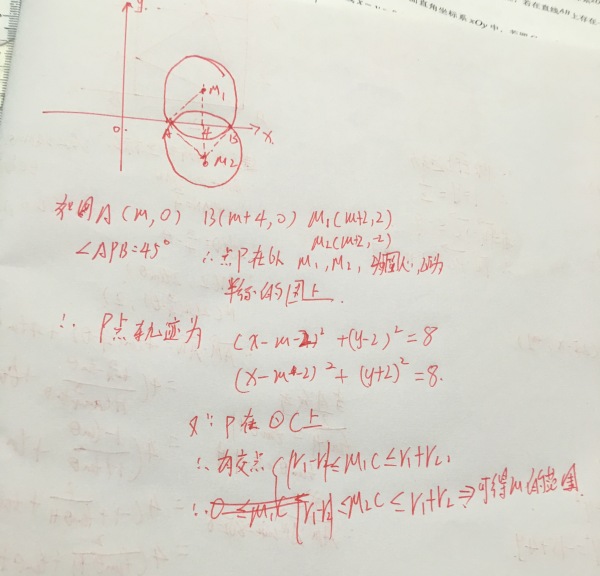 面直角坐标系xOy中
若在直线AB上存在一
y
M₁
O
A
4
B
x
M₂
如图A(m,0) B(m+4,0) M₁(m+2,2)
M₂(m+2,-2)
∠APB=45° ∴点P在以M₁,M₂,为圆心,2√2为
半径的圆上.
∴P点轨迹为 (x-m-2)²+(y-2)²=8
(x-m-2)²+(y+2)²=8.
又∵P在⊙C上
∴有交点 |r₁-r₂|≤M₁C≤r₁+r₂,
∴ |r₁-r₂|≤M₂C≤r₁+r₂⇒可得m的范围.